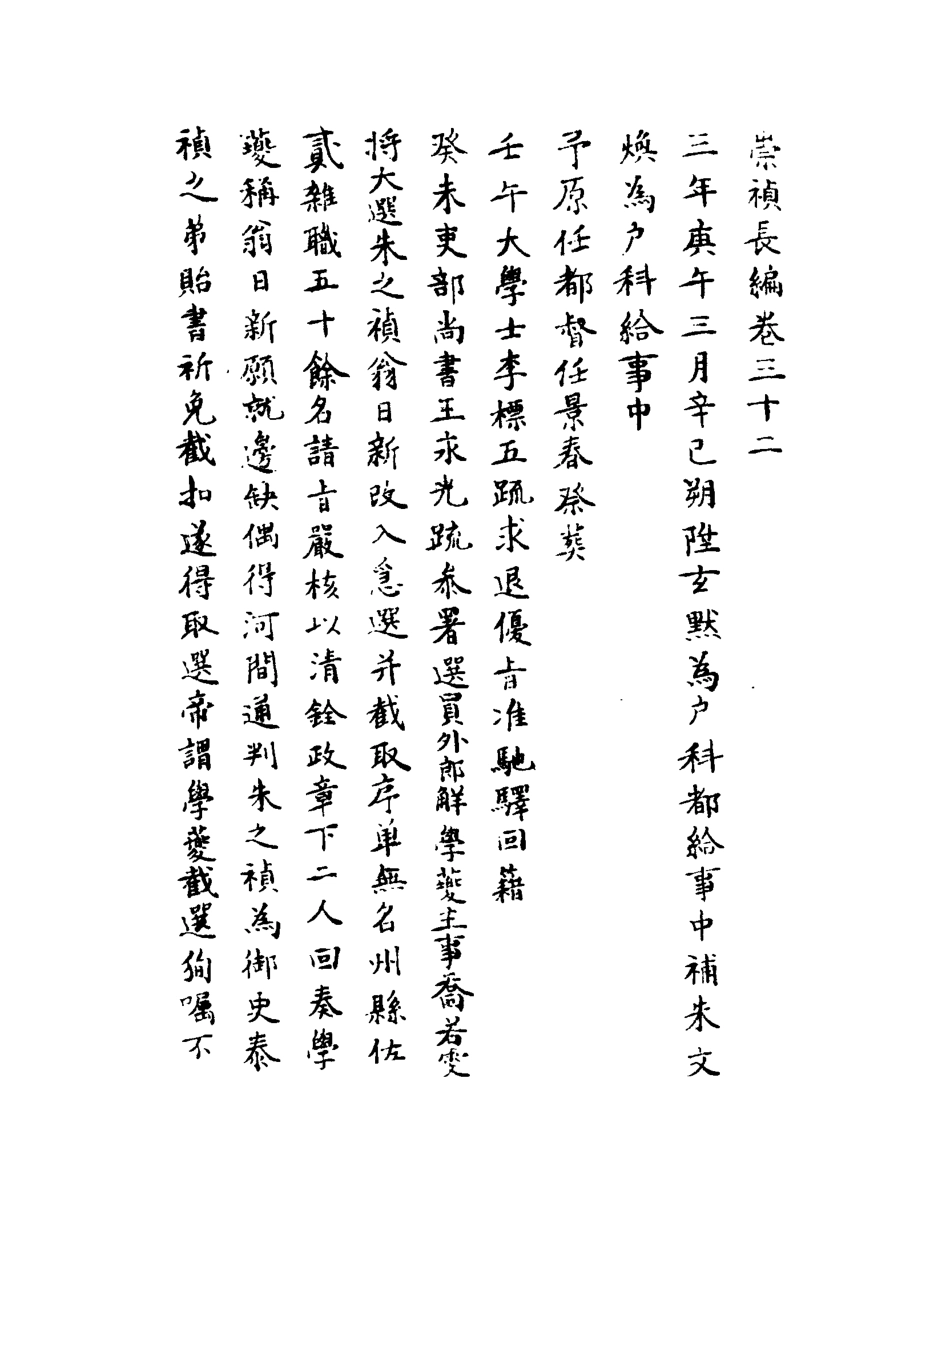 崇禎長編卷三十二
三年庚午三月辛巳朔陞玄默為户科都給事中補朱文
煥為户科給事中
予原任都督任景春祭葬
壬午大學士李標五疏求退優旨准馳驛回籍
癸未吏部尚書王永光疏叅署選員外郎解學夔主事喬若雯
将大選朱之禎翁日新改入急選并截取序单無名州縣佐
貳雜職五十餘名請旨嚴核以清銓政章下二人回奏學
夔稱翁日新願就邊缺偶得河間通判朱之禎為御史泰
禎之弟貽書祈免截扣遂得取選帝謂學夔截選狥囑不